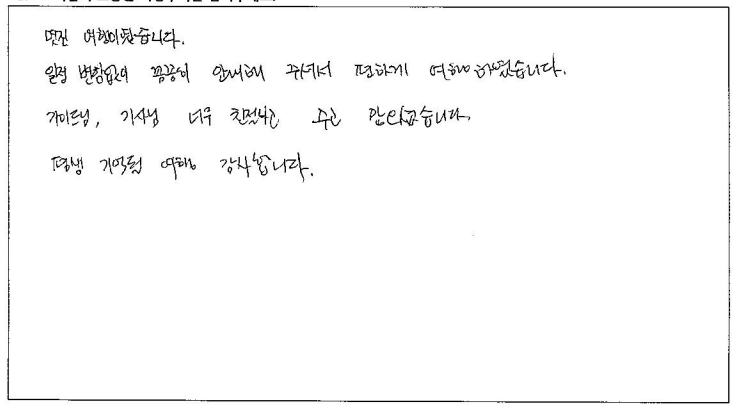 멋진 여행이었습니다.
일정 변함없이 꼼꼼히 안내해 주셔서 편하게 여행하였습니다.
가이드님, 기사님 너무 친절하고 수고 많으셨습니다.
평생 기억될 여행 감사합니다.